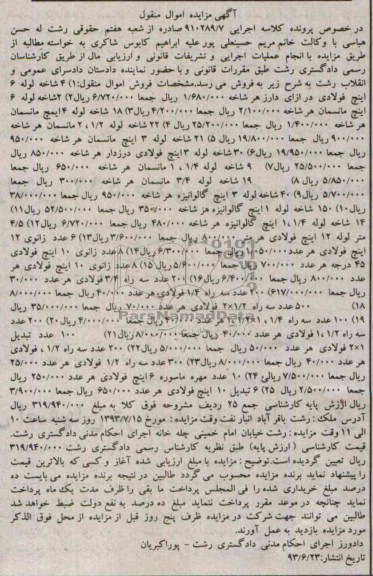 آگهی مزایده اموال منقول
در خصوص پرونده کلاسه اجرایی ۹۱۰۲۸۹/۷ صادره از شعبه هفتم حقوقی رشت له حسن
هیاسی با وکالت خانم مریم حسینعلی پور علیه ابراهیم کابوس شاکری به خواسته مطالبه از
طریق مزایده با انجام عملیات اجرایی و تشریفات قانونی و ارزیابی مال از طریق کارشناسان
رسمی دادگستری رشت طبق مقررات قانونی و با حضور نماینده دادستان دادسرای عمومی و
انقلاب رشت به شرح زیر به فروش می رسد.مشخصات فروش اموال منقول:۱) ۴ شاخه لوله ۶
اینچ فولادی درزای دارز هر شاخه ۱/۶۸۰/۰۰۰ ریال جمعا ۶/۷۲۰/۰۰۰ ریال۲) ۲شاخه لوله ۶
اینچ مانسمان هر شاخه ۲/۱۰۰/۰۰۰ ریال جمعا ۴/۲۰۰/۰۰۰ ریال۳) ۱۸ شاخه لوله ۴ اینچ مانسمان
هر شاخه ۱/۴۰۰/۰۰۰ ریال جمعا ۲۵/۲۰۰/۰۰۰ ریال ۴) ۲۲ شاخه لوله ۱/۲ ،۲ مانسمان هر شاخه
۹۰۰/۰۰۰ ریال جمعا ۱۹/۸۰۰/۰۰۰ ریال ۵) ۲۱ شاخه لوله ۳ اینچ مانسمان هر شاخه ۹۵۰/۰۰۰
ریال جمعا ۱۹/۹۵۰/۰۰۰ ریال۶) ۳۰شاخه لوله ۳اینچ فولادی درزدار هر شاخه ۸۵۰/۰۰۰ ریال
جمعا ۲۵/۵۰۰/۰۰۰ ریال۷) ۹ شاخه لوله ۱/۴ ،۱ مانسمان هر شاخه ۶۵۰/۰۰۰ ریال جمعا
۵/۸۵۰/۰۰۰ ریال ۸) ۱۹ شاخه لوله ۳/۴ مانسمان هر شاخه ۳۰۰/۰۰۰ ریال جمعا
۵/۷۰۰/۰۰۰ ریال ۹) ۴۰ شاخه لوله ۳ اینچ گالوانیزه هر شاخه ۹۵۰/۰۰۰ ریال جمعا ۳۸/۰۰۰/۰۰۰
ریال۱۰) ۱۵۰ شاخه لوله ۱اینچ گالوانیزه هر شاخه ۳۵۰/۰۰۰ ریال جمعا ۵۲/۵۰۰/۰۰۰ ریال۱۱)
۱۴ شاخه لوله ۱/۴ ،۱ اینچ گالوانیزه هر شاخه ۴۸۰/۰۰۰ ریال جمعا ۶/۷۲۰/۰۰۰ ریال ۱۲) ۴/۵
متر لوله ۱۲ اینچ فولادی هر متر ۸۰۰/۰۰۰ ریال جمعا ۳/۶۰۰/۰۰۰ ریال۱۳) ۶ عدد زانویی ۱۲
اینچ فولادی هر عدد ۱/۰۵۰/۰۰۰ ریال جمعا ۶/۳۰۰/۰۰۰ ریال۱۴) ۸عدد زانویی ۱۰ اینچ فولادی
۴۵ درجه هر عدد ۷۰۰/۰۰۰ ریال جمعا ۵/۶۰۰/۰۰۰ ریال ۱۵) ۸ عدد زانویی ۱۰ اینچ فولادی هر
عدد ۸۰۰/۰۰۰ ریال جمعا ۶/۴۰۰/۰۰۰ ریال۱۶) ۲۰۰ عدد سه راه ۳/۴ فولادی هر عدد ۳۰/۰۰۰
ریال جمعا ۶/۰۰۰/۰۰۰ ریال۱۷) ۲۰۰ عدد سه راه ۱/۴ فولادی هر عدد ۴۰/۰۰۰ ریال جمعا ۸/۰۰۰/۰۰۰
ریال۱۸) ۵۰۰ عدد سه راه ۱/۲×۲ فولادی هر عدد ۷۰/۰۰۰ ریال جمعا ۳۵/۰۰۰/۰۰۰ ریال
۱۹) ۱۰۰ عدد سه راه ۱/۴ ،۱ فولادی هر عدد ۴۰/۰۰۰ ریال جمعا ۴/۰۰۰/۰۰۰ ریال ۲۰) ۲۰۰ عدد
سه راه ۱/۲ ،۱ فولادی هر عدد ۴۰/۰۰۰ ریال جمعا ۸/۰۰۰/۰۰۰ ریال۲۱) ۱۰۰ عدد تبدیل
۱×۲ فولادی هر عدد ۵۰/۰۰۰ ریال جمعا ۵/۰۰۰/۰۰۰ ریال۲۲) ۲۰۰ عدد سه راه ۱/۲ ،۱ فولادی
هر عدد ۴۰/۰۰۰ ریال جمعا ۸/۰۰۰/۰۰۰ ریال۲۳) ۳۰۰ عدد سه راه ۱/۲ فولادی هر عدد ۲۵/۰۰۰
جمعا ۷/۵۰۰/۰۰۰ ریالی ۲۴) ۱۰ عدد مهره ماسوره ۶ اینچ فولادی هر عدد ۲۵۰/۰۰۰ ریال
جمعا ۲/۵۰۰/۰۰۰ ریال ۲۵) ۶ تبدیل ۱۰ اینچ فولادی هر عدد ۶۵۰/۰۰۰ ریال جمعا ۳/۹۰۰/۰۰۰
ریال ارزش پایه کارشناسی جمع ۲۵ ردیف مشروحه فوق کلا به مبلغ ۳۱۹/۹۴۰/۰۰۰ ریال
آدرس ملک: رشت باقر آباد انبار نفت وقت مزایده : مورخ ۱۳۹۳/۷/۱۵ روز سه شنبه ساعت ۱۰
الی ۱۱ وقت مزایده : رشت خیابان امام خمینی چله خانه اجرای احکام مدنی دادگستری رشت.
قیمت کارشناسی (ارزش پایه) طبق نظریه کارشناس رسمی دادگستری رشت ۳۱۹/۹۴۰/۰۰۰
ریال تعیین گردیده است.توضیح : مزایده با مبلغ ارزیابی شده آغاز و کسی که بالاترین قیمت
را پیشنهاد نماید برنده مزایده محسوب می گردد طالبین در نتیجه برنده مزایده می بایست ده
درصد مبلغ خریداری شده را فی المجلس پرداخت ما بقی را ظرف مدت یک ماه پرداخت
نماید چنانچه در موعد مقرر پرداخت ننماید مبلغ ده درصد به نفع دولت ضبط خواهد شد
طالبین می توانند جهت شرکت در مزایده ظرف پنج روز قبل از مزایده از محل فوق الذکر
مورد مزایده بازدید به عمل آورند.
دادورز اجرای احکام مدنی دادگستری رشت - پوراکبریان
تاریخ انتشار:۹۳/۶/۲۳